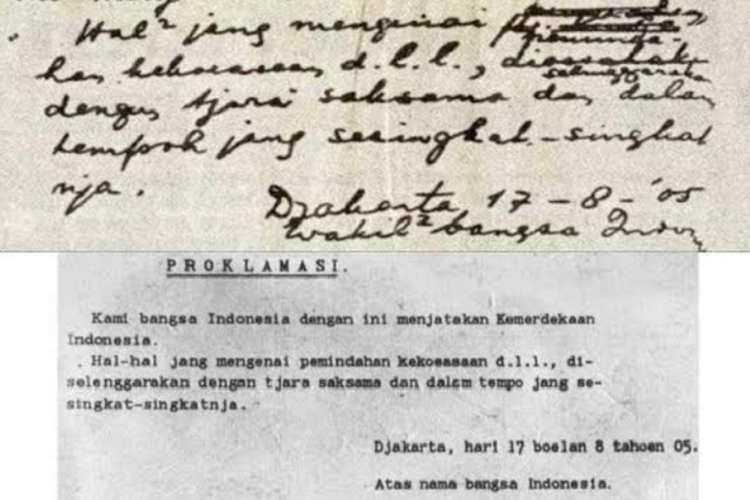 Hal² jang mengenai pemindahan
han kekoeasaan d.l.l., diselenggarakan
dengan tjara saksama dan dalam
tempoh jang sesingkat-singkat
nja.
Djakarta 17 - 8 - '05
Wakil² bangsa Indon
PROKLAMASI.
Kami bangsa Indonesia dengan ini menjatakan Kemerdekaan
Indonesia.
Hal-hal jang mengenai pemindahan kekoeasaan d.l.l., di-
selenggarakan dengan tjara saksama dan dalam tempo jang se-
singkat-singkatnja.
Djakarta, hari 17 boelan 8 tahoen 05.
Atas nama bangsa Indonesia.